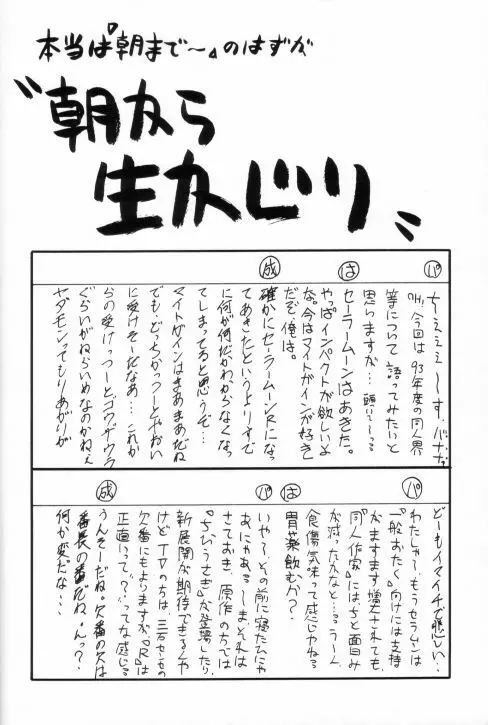 本当は『朝まで〜』のはずが
〝朝から
生かじり〟
パ
ちぇぇぇ〜す、バナナ
でH、今回は93年度の同人界
等について語ってみたいと
思いますが…
は
セーラームーンはあきた。
やっぱインパクトが欲しいよ
な。今はマイトガインが好き
だぞ、俺は。
成
確かにセーラームーンRになっ
てあきたというよりすで
に何が何だかわからなくなっ
てしまってると思うぞ…
マイトガインはまあまあだね
でも、どっちかっつーとやおい
に受けそーだなあ…これか
らの受けっつーとゴウザウラ
ぐらいがねらいめなのかねぇ
ヤダモンってもりあがりが
パ
どーもイマイチで悲しい…
わたしゃ〜もうセラムンは
『一般おたく』向けには支持
がますます増大されても、
『同人作家』にはちと面白み
が減ったかなと…うーん
は
食傷気味って感じかねる
胃薬飲むか？
パ
いや〜、その前に寝たひにゃ
あ、にゃある…しまそれは
さておき、原作の方では
『ちびうさぎ』が登場したり、
新展開が期待できるんや
けどTVのちは、三石センセの
欠番にもよりますが『R』は
正直って？？ってな感じる
成
うんそーだね。欠番の欠は
番長の番だね、んっ？
何か変だな…